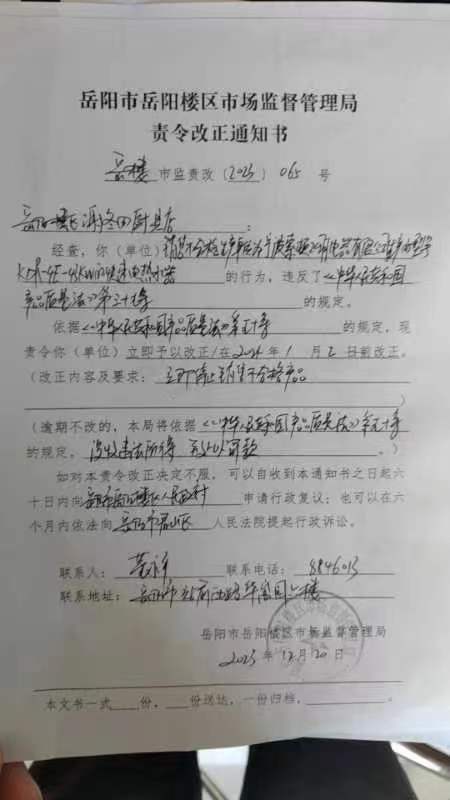 岳阳市岳阳楼区市场监督管理局
责令改正通知书
岳楼 市监责改〔2023〕065 号
岳阳楼区 厨具店：
经查，你（单位）销售不合格
KDR-4E-48KW 电热水器 的行为，违反了《中华人民共和国
产品质量法》第三十九条 的规定。
依据《中华人民共和国产品质量法》第五十条 的规定，现
责令你（单位）立即予以改正/在2024年1月2日前改正。
（改正内容及要求：立即停止销售不合格产品
）
（逾期不改的，本局将依据《中华人民共和国产品质量法》第五十条
的规定，没收违法所得 并处以罚款 。）
如对本责令改正决定不服，可以自收到本通知书之日起六
十日内向岳阳市岳阳楼区人民政府 申请行政复议；也可以在六
个月内依法向 岳阳市君山区 人民法院提起行政诉讼。
联系人： 联系电话：8846013
联系地址：岳阳市 楼
岳阳市岳阳楼区市场监督管理局
2023年12月20日
本文书一式 份， 份送达，一份归档，